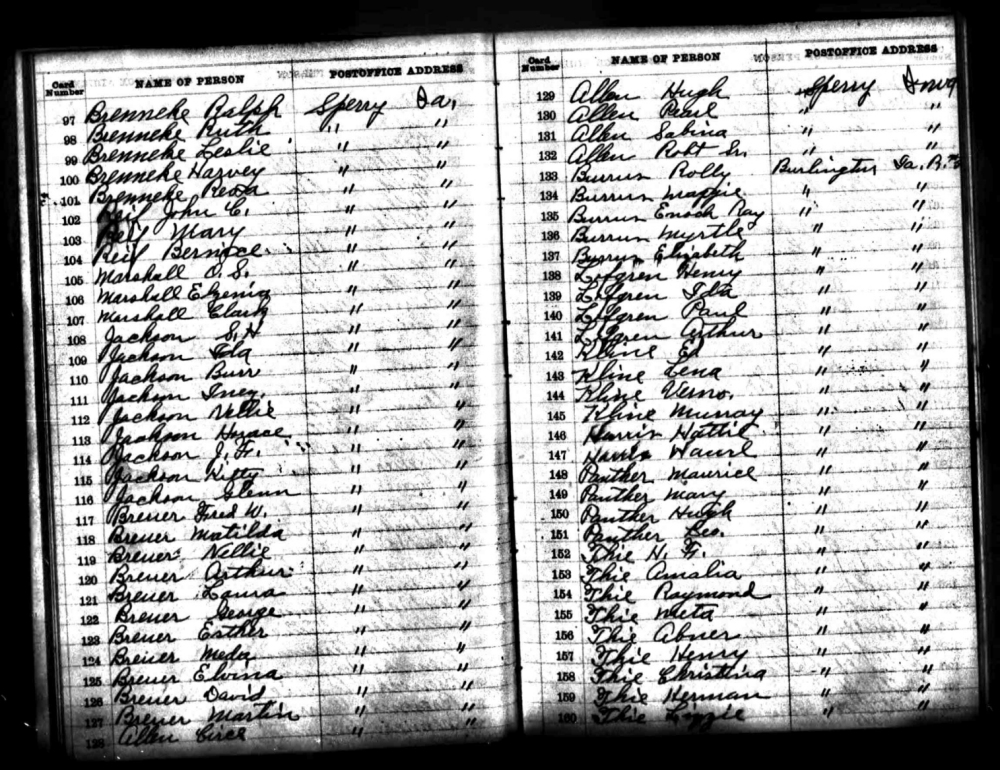 Card Number NAME OF PERSON POSTOFFICE ADDRESS
97 Brenneke Ralph Sperry Ia.
98 Brenneke Ruth " "
99 Brenneke Leslie " "
100 Brenneke Harvey " "
101 Brenneke Reva " "
102 Reif John C. " "
103 Reif Mary " "
104 Reif Bernice " "
105 Marshall O. S. " "
106 Marshall Elzenia " "
107 Marshall Clark " "
108 Jackson S. H " "
109 Jackson Ida " "
110 Jackson Burr " "
111 Jackson Inez. " "
112 Jackson Nellie " "
113 Jackson Horace " "
114 Jackson J. Fr. " "
115 Jackson Kitty " "
116 Jackson Glenn " "
117 Breuer Fred W. " "
118 Breuer Matilda " "
119 Breuer Nellie " "
120 Breuer Arthur " "
121 Breuer Laura " "
122 Breuer George " "
123 Breuer Esther " "
124 Breuer Meda " "
125 Breuer Elvina " "
126 Breuer David " "
127 Breuer Martin " "
128 Allen " "
Card Number NAME OF PERSON POSTOFFICE ADDRESS
129 Allen Hugh Sperry Iowa
130 Allen Pearl " "
131 Allen Sabina " "
132 Allen Robt Sr. " "
133 Burrus Rolly Burlington Ia. R.
134 Burrus Maggie " "
135 Burrus Enoch Ray " "
136 Burrus Myrtle " "
137 Burrus Elizabeth " "
138 Lofgren Henry " "
139 Lofgren Ida " "
140 Lofgren Paul " "
141 Lofgren Arthur " "
142 Kline Ed " "
143 Kline Lena " "
144 Kline Verno. " "
145 Kline Murray " "
146 Harris Hattie " "
147 Harris " "
148 Panther Maurice " "
149 Panther Mary " "
150 Panther Hugh " "
151 Panther Leo. " "
152 Thie H. F. " "
153 Thie Amalia " "
154 Thie Raymond " "
155 Thie Meta " "
156 Thie Abner " "
157 Thie Henry " "
158 Thie Christina " "
159 Thie Herman " "
160 Thie Lizzie " "